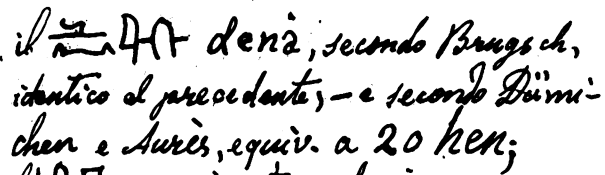 il denà, secondo Brugsch,
identico al precedente, – e secondo Dümi-
chen e Aurès, equiv. a 20 hen;